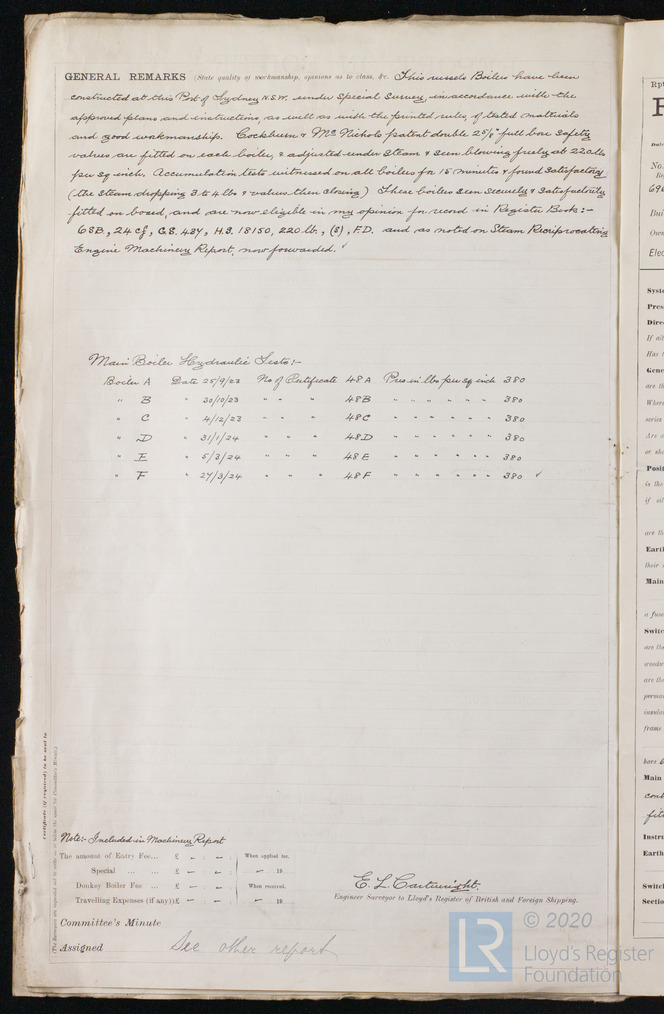 GENERAL REMARKS (State quality of workmanship, opinions as to class, &c. This vessels Boilers have been
constructed at this Port of Sydney N.S.W. under Special Survey, in accordance with the
approved plans and instructions, as well as with the printed rules, of tested materials
and good workmanship. Cockburn & McNichols patent double 2 5/8" full bore safety
valves are fitted on each boiler, & adjusted under steam & seen blowing freely at 220 lbs
per sq inch. Accumulation tests witnessed on all boilers for 15 minutes & found satisfactory
(the steam dropping 3 to 4 lbs & valves then closing) These boilers seen securely & satisfactorily
fitted on board, and are now eligible in my opinion for record in Register Book:-
6SB, 24 cf, G.S. 484, H.S. 18150, 220 lb, (S), F.D. and as noted on Steam Reciprocating
Engine Machinery Report, now forwarded.
Main Boiler Hydraulic Tests:-
Boiler A Date 25/9/23 No of Certificate 48A Pres in lbs per sq inch 380
" B " 30/10/23 " " " 48B " " " " " 380
" C " 4/12/23 " " " 48C " " " " " 380
" D " 31/1/24 " " " 48D " " " " " 380
" E " 5/3/24 " " " 48E " " " " " 380
" F " 27/3/24 " " " 48F " " " " " 380
Note:- Included in Machinery Report
The amount of Entry Fee... £ - : - : When applied for,
Special ... ... £ - : - : - 19
Donkey Boiler Fee ... £ - : - : When received,
Travelling Expenses (if any) £ - : - : - 19
E. L. Cartwright.
Engineer Surveyor to Lloyd's Register of British and Foreign Shipping.
Committee's Minute
Assigned See other report
Certificate (if required) to be sent to
LR © 2020
Lloyd's Register
Foundation